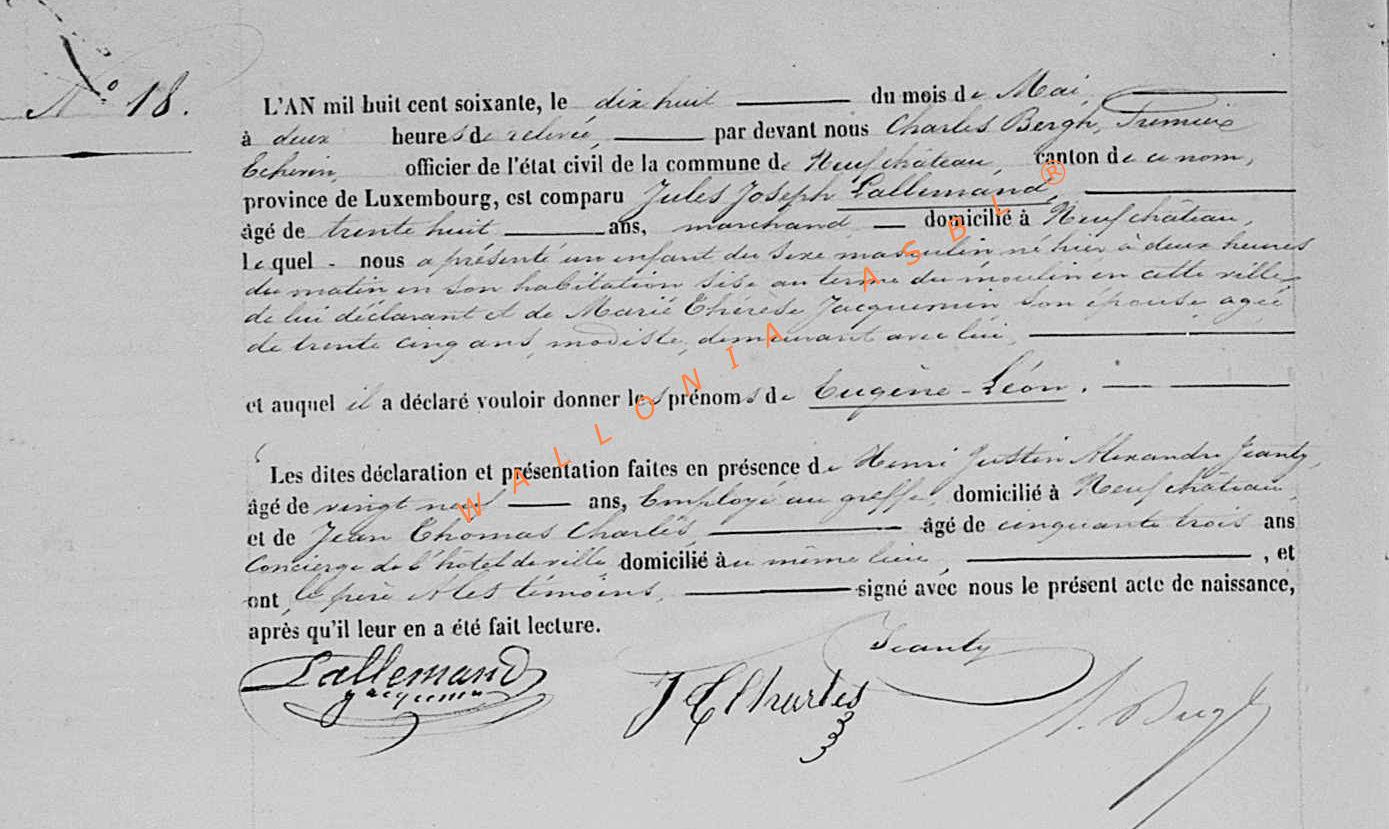 N° 18.
L'AN mil huit cent soixante, le dix huit du mois de Mai,
à deux heures de relevée, par devant nous Charles Bergh, Premier
Echevin, officier de l'état civil de la commune de Neufchâteau, canton de ce nom,
province de Luxembourg, est comparu Jules Joseph Lallemand,
âgé de trente huit ans, marchand domicilié à Neufchâteau,
Lequel nous a présenté un enfant du sexe masculin né hier à deux heures
du matin en son habitation sise au terme du moulin en cette ville
de lui déclarant et de Marie Thérèse Jacquemin son épouse agée
de trente cinq ans, modiste, demeurant avec lui,
et auquel il a déclaré vouloir donner les prénoms de Eugène-Léon.
Les dites déclaration et présentation faites en présence de Henri Justin Alexandre Jeanty,
âgé de vingt neuf ans, Employé au greffe, domicilié à Neufchâteau,
et de Jean Thomas Charles, âgé de cinquante trois ans
Concierge de l'hôtel de ville domicilié au même lieu, , et
ont, le père et les témoins, signé avec nous le présent acte de naissance,
après qu'il leur en a été fait lecture.
Jeanty
Lallemand
Jacquemin
J T Charles
WALLONIA ASBL ®